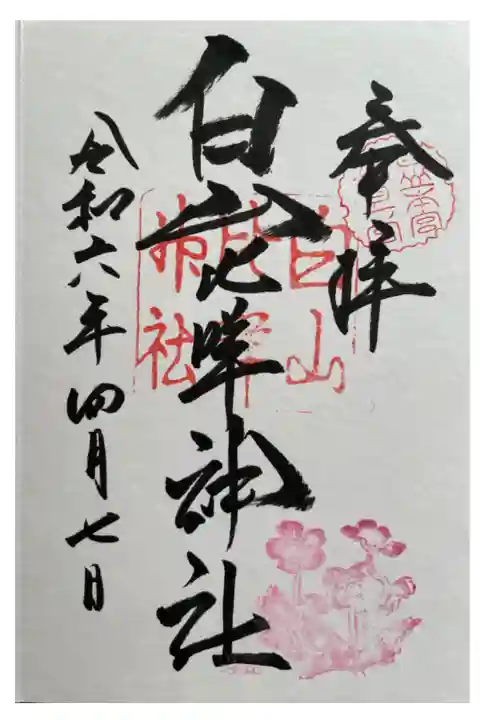 奉拝
白山比咩神社
令和六年四月七日
白山
比咩
神社